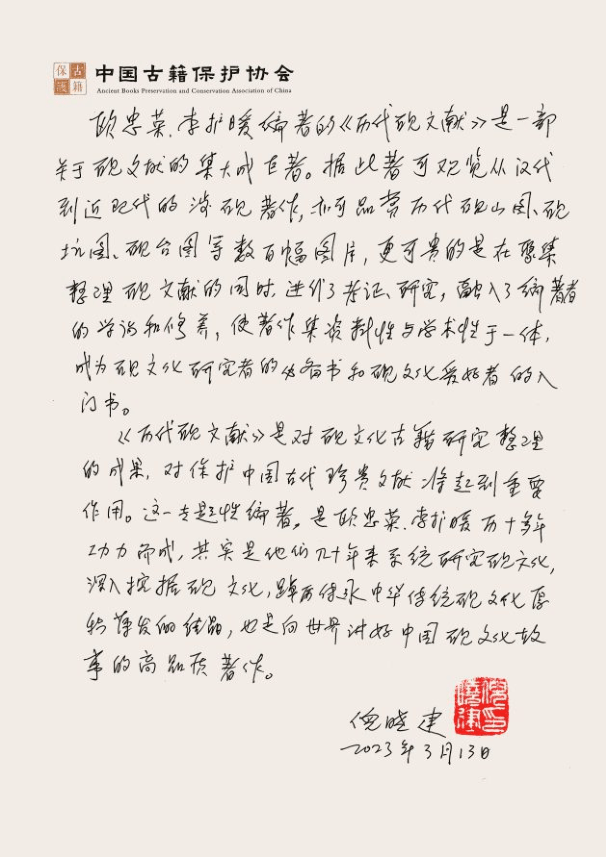 保 古
護 籍
中国古籍保护协会
Ancient Books Preservation and Conservation Association of China
欧忠荣、李护暖编著的《历代砚文献》是一部
关于砚文献的集大成巨著。据此著可观览从汉代
到近现代的涉砚著作,亦可品赏历代砚山图、砚
坑图、砚台图等数百幅图片,更可贵的是在聚集
整理砚文献的同时,进行了考证、研究,融入了编著者
的学识和修养,使著作集资料性与学术性于一体,
成为砚文化研究者的必备书和砚文化爱好者的入
门书。
《历代砚文献》是对砚文化古籍研究整理
的成果,对保护中国古代珍贵文献将起到重要
作用。这一专题性编著,是欧忠荣、李护暖历十多年
功力而成,其实是他们几十年来系统研究砚文化,
深入挖掘砚文化,踔厉传承中华传统砚文化厚
积薄发的结晶,也是向世界讲好中国砚文化故
事的高品质著作。
倪晓建
2023年3月13日